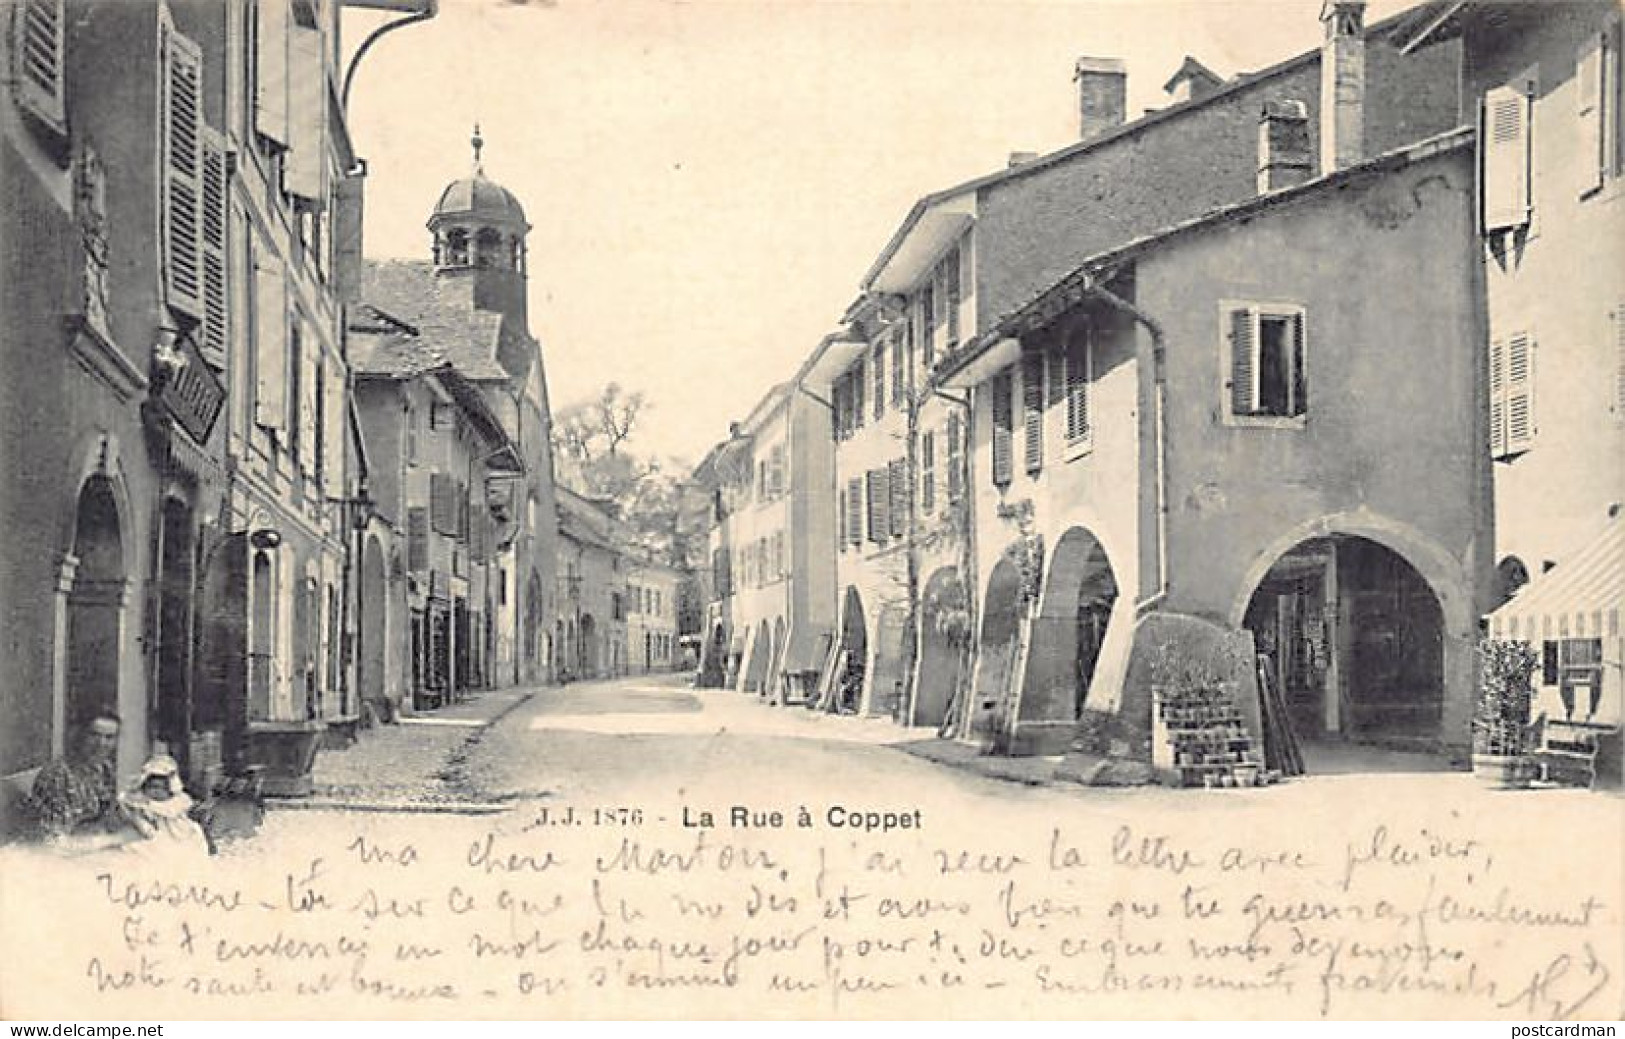 J.J. 1876 - La Rue à Coppet
ma chère Marton, j'ai reçu ta lettre avec plaisir,
rassure-toi sur ce que tu me dis et crois bien que tu guériras facilement
Je t'enverrai un mot chaque jour pour t. dire ce que nous devenons,
Notre santé est bonne - On s'ennuie un peu ici - Embrassements fraternels
postcardman
Details: www.delcampe.net